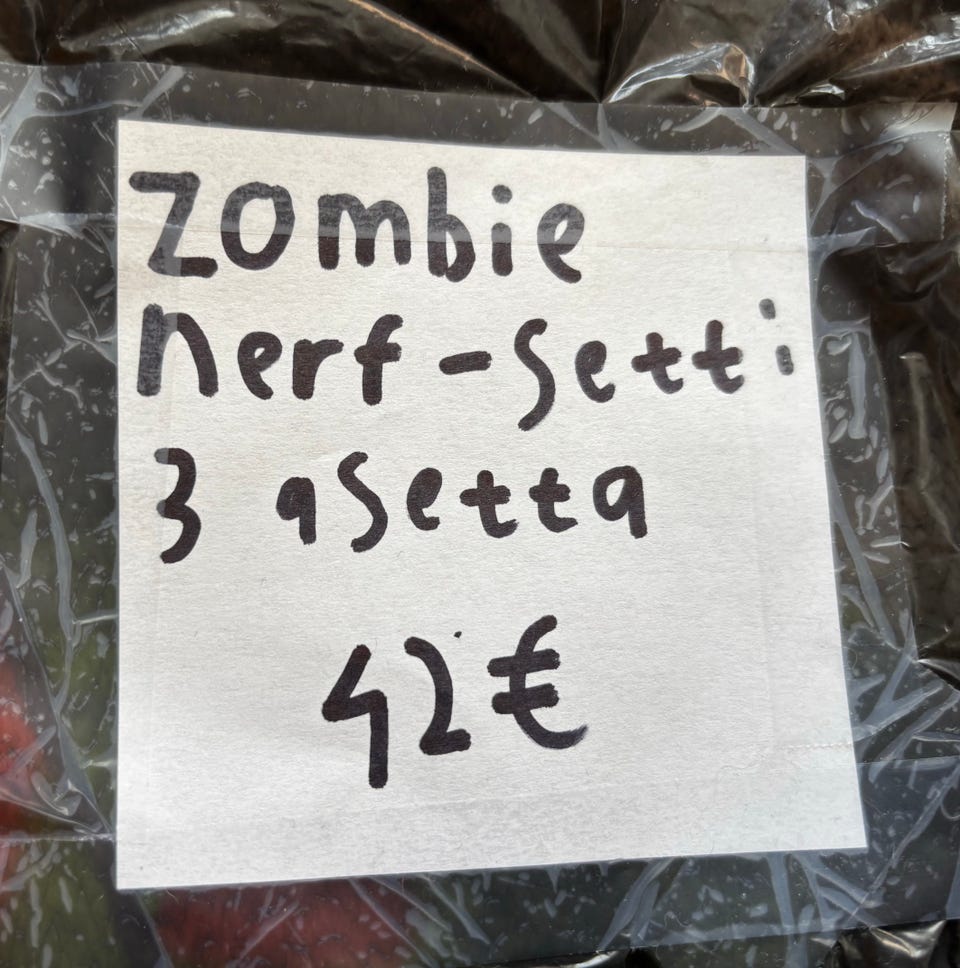 Zombie
nerf-setti
3 asetta
42€